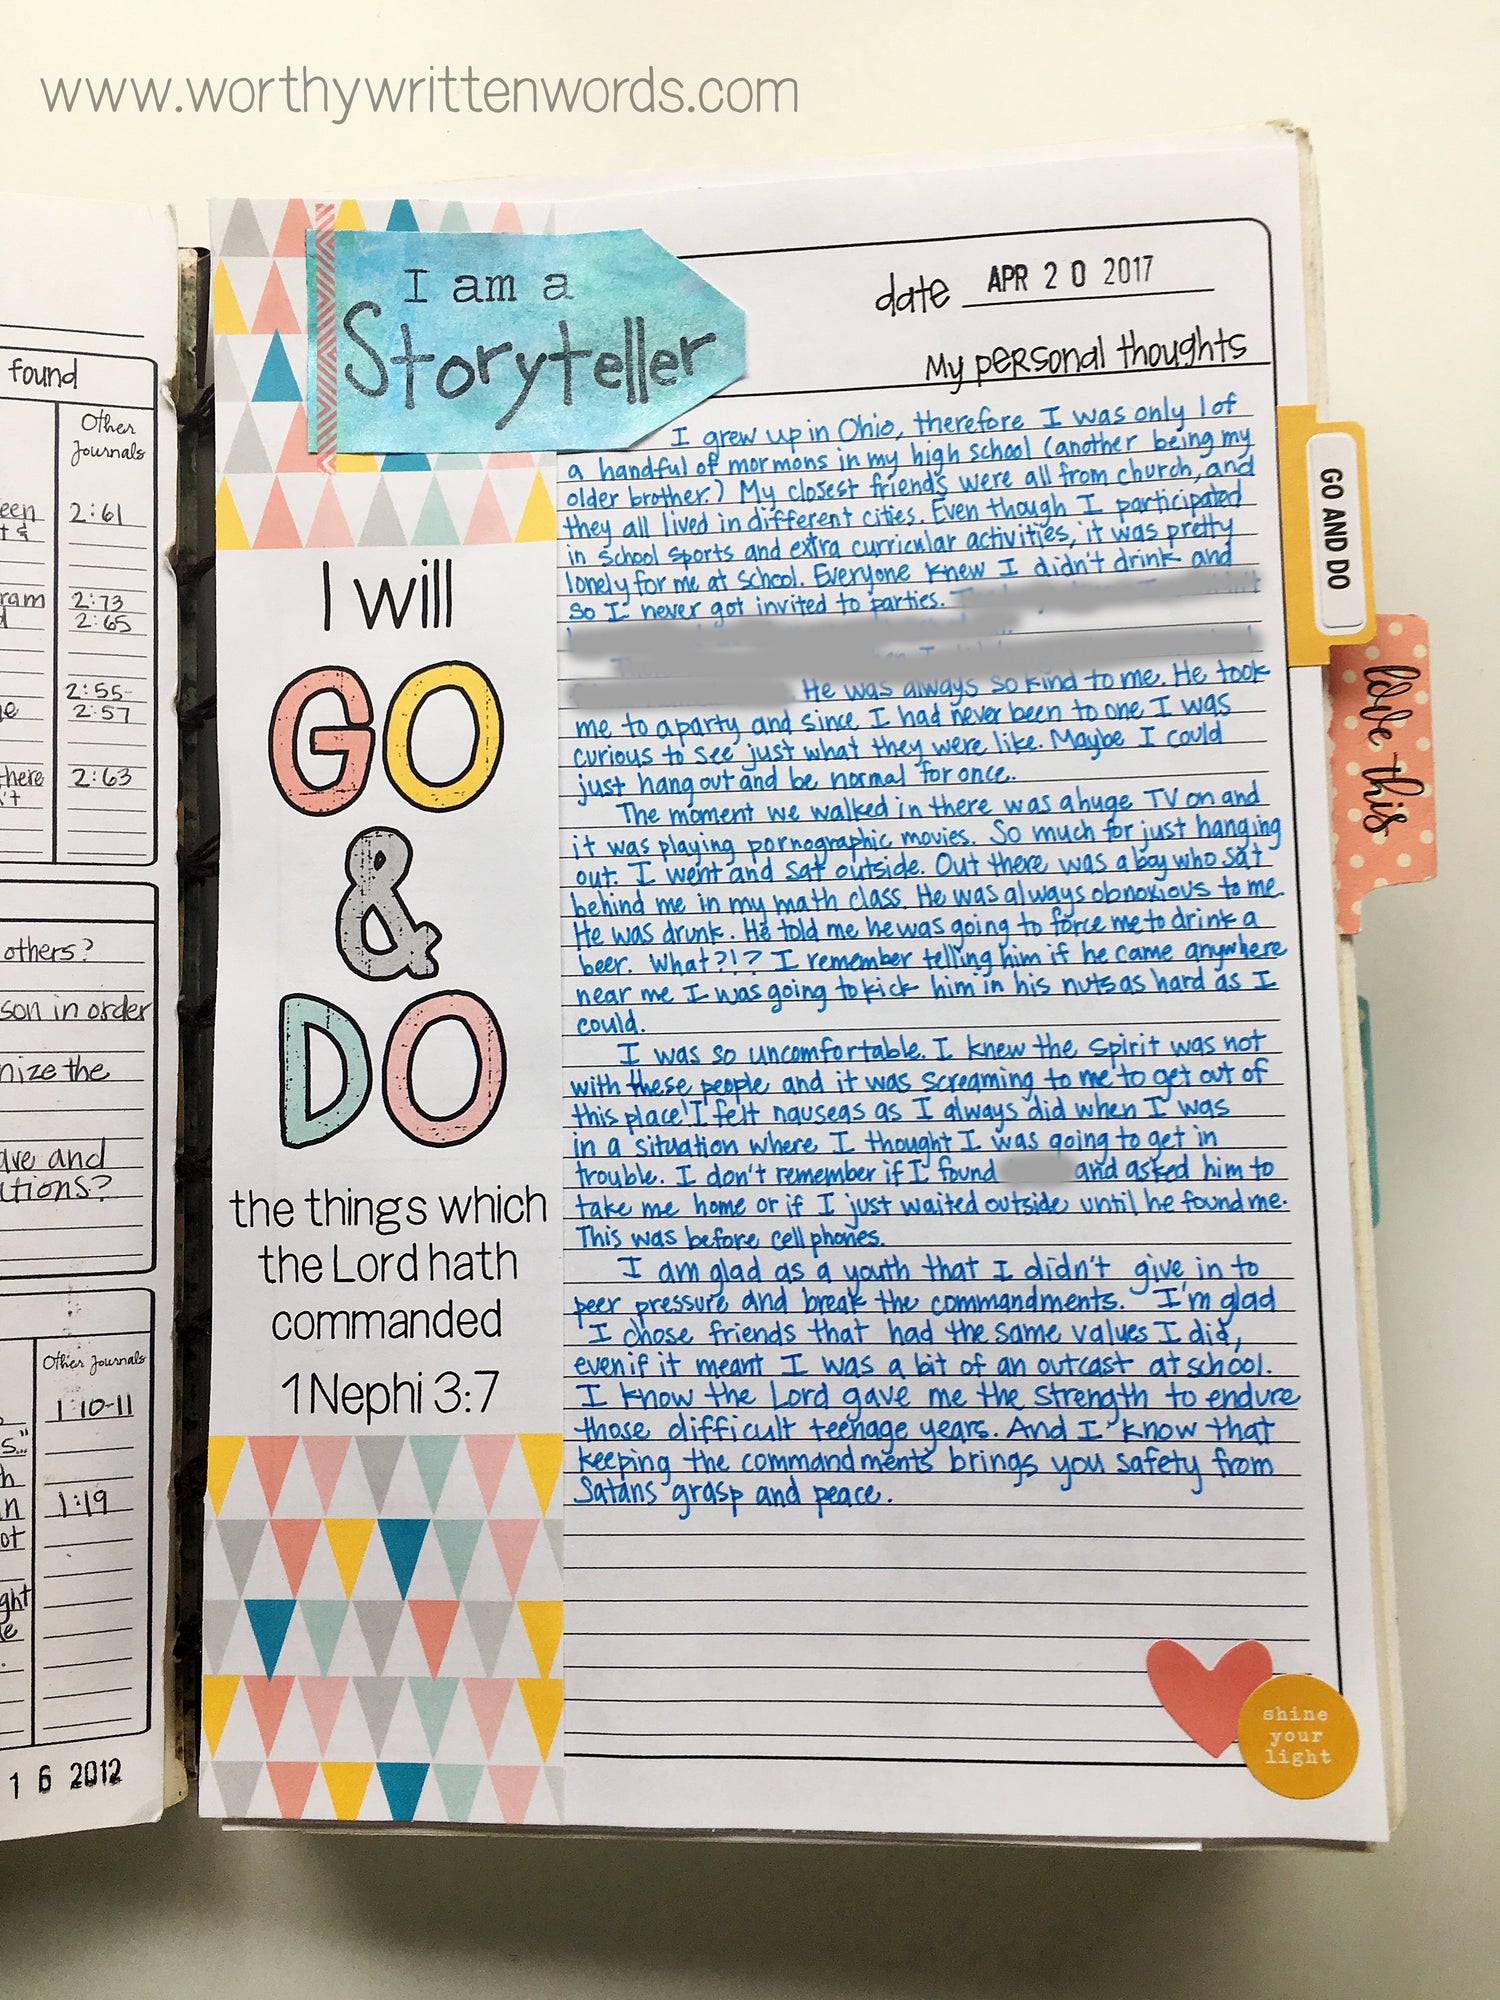 www.worthywrittenwords.com
found
Other
Journals
een
2:61
t &
ram
2:73
d
2:65
2:55-
e
2:57
there
2:63
't
others?
son in order
nize the
ave and
utions?
Other Journals
1:10-11
s..."
h
n
1:19
ot
ght
le
1 6 2012
I am a
Storyteller
I will
GO
&
DO
the things which
the Lord hath
commanded
1 Nephi 3:7
date APR 2 0 2017
My personal thoughts
I grew up in Ohio, therefore I was only 1 of
a handful of mormons in my high school (another being my
older brother.) My closest friends were all from church, and
they all lived in different cities. Even though I participated
in school sports and extra curricular activities, it was pretty
lonely for me at school. Everyone knew I didn't drink and
so I never got invited to parties.
He was always so kind to me. He took
me to a party and since I had never been to one I was
curious to see just what they were like. Maybe I could
just hang out and be normal for once.
The moment we walked in there was a huge TV on and
it was playing pornographic movies. So much for just hanging
out. I went and sat outside. Out there was a boy who sat
behind me in my math class. He was always obnoxious to me.
He was drunk. He told me he was going to force me to drink a
beer. What?!? I remember telling him if he came anywhere
near me I was going to kick him in his nuts as hard as I
could.
I was so uncomfortable. I knew the spirit was not
with these people and it was screaming to me to get out of
this place! I felt nauseas as I always did when I was
in a situation where I thought I was going to get in
trouble. I don't remember if I found and asked him to
take me home or if I just waited outside until he found me.
This was before cell phones.
I am glad as a youth that I didn't give in to
peer pressure and break the commandments. I'm glad
I chose friends that had the same values I did,
even if it meant I was a bit of an outcast at school.
I know the Lord gave me the strength to endure
those difficult teenage years. And I know that
keeping the commandments brings you safety from
Satans grasp and peace.
GO AND DO
love this
shine
your
light